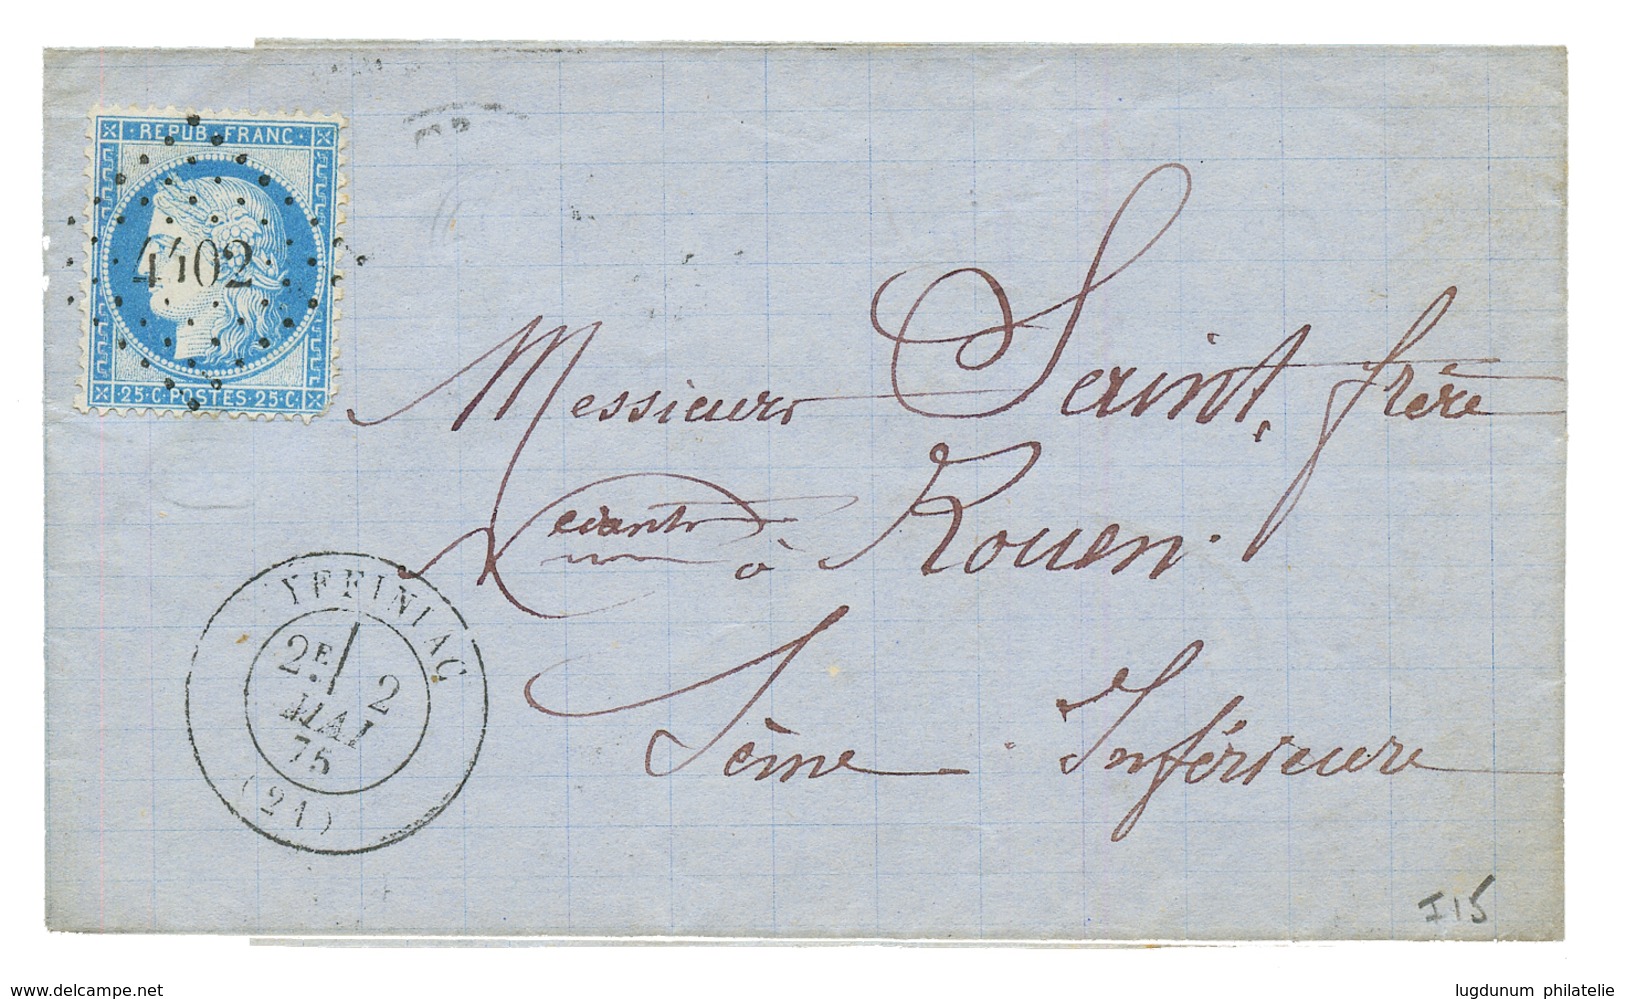 REPUB. FRANC.
4402
25·C·POSTES·25·C
Messieurs Saint, frère
à Rouen.
Seine Inférieure
YFFINIAC
2E 2
MAI
75
(21)
I15
www.delcampe.net
lugdunum philatelie